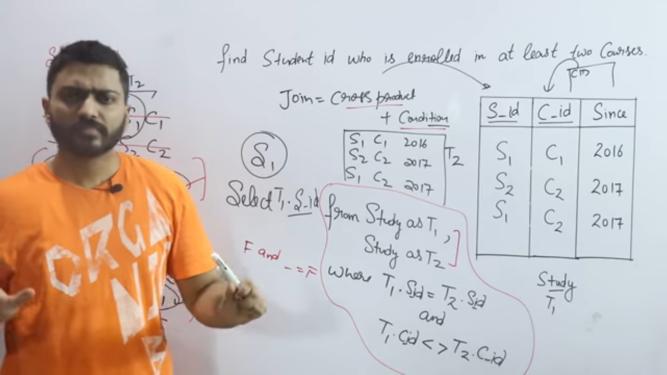 find Student id who is enrolled in at least two Courses.
Join = Cross product
+ Condition
S1 C1 2016
S2 C2 2017
S1 C2 2017
T2
S1
Select T1.S_id
from Study as T1,
Study as T2
F and - = F
where T1.Sid = T2.Sid
and
T1.Cid <> T2.C_id
S_id C_id Since
S1 C1 2016
S2 C2 2017
S1 C2 2017
Study
T1
T2
S1 C1
S2 C2
ORGA